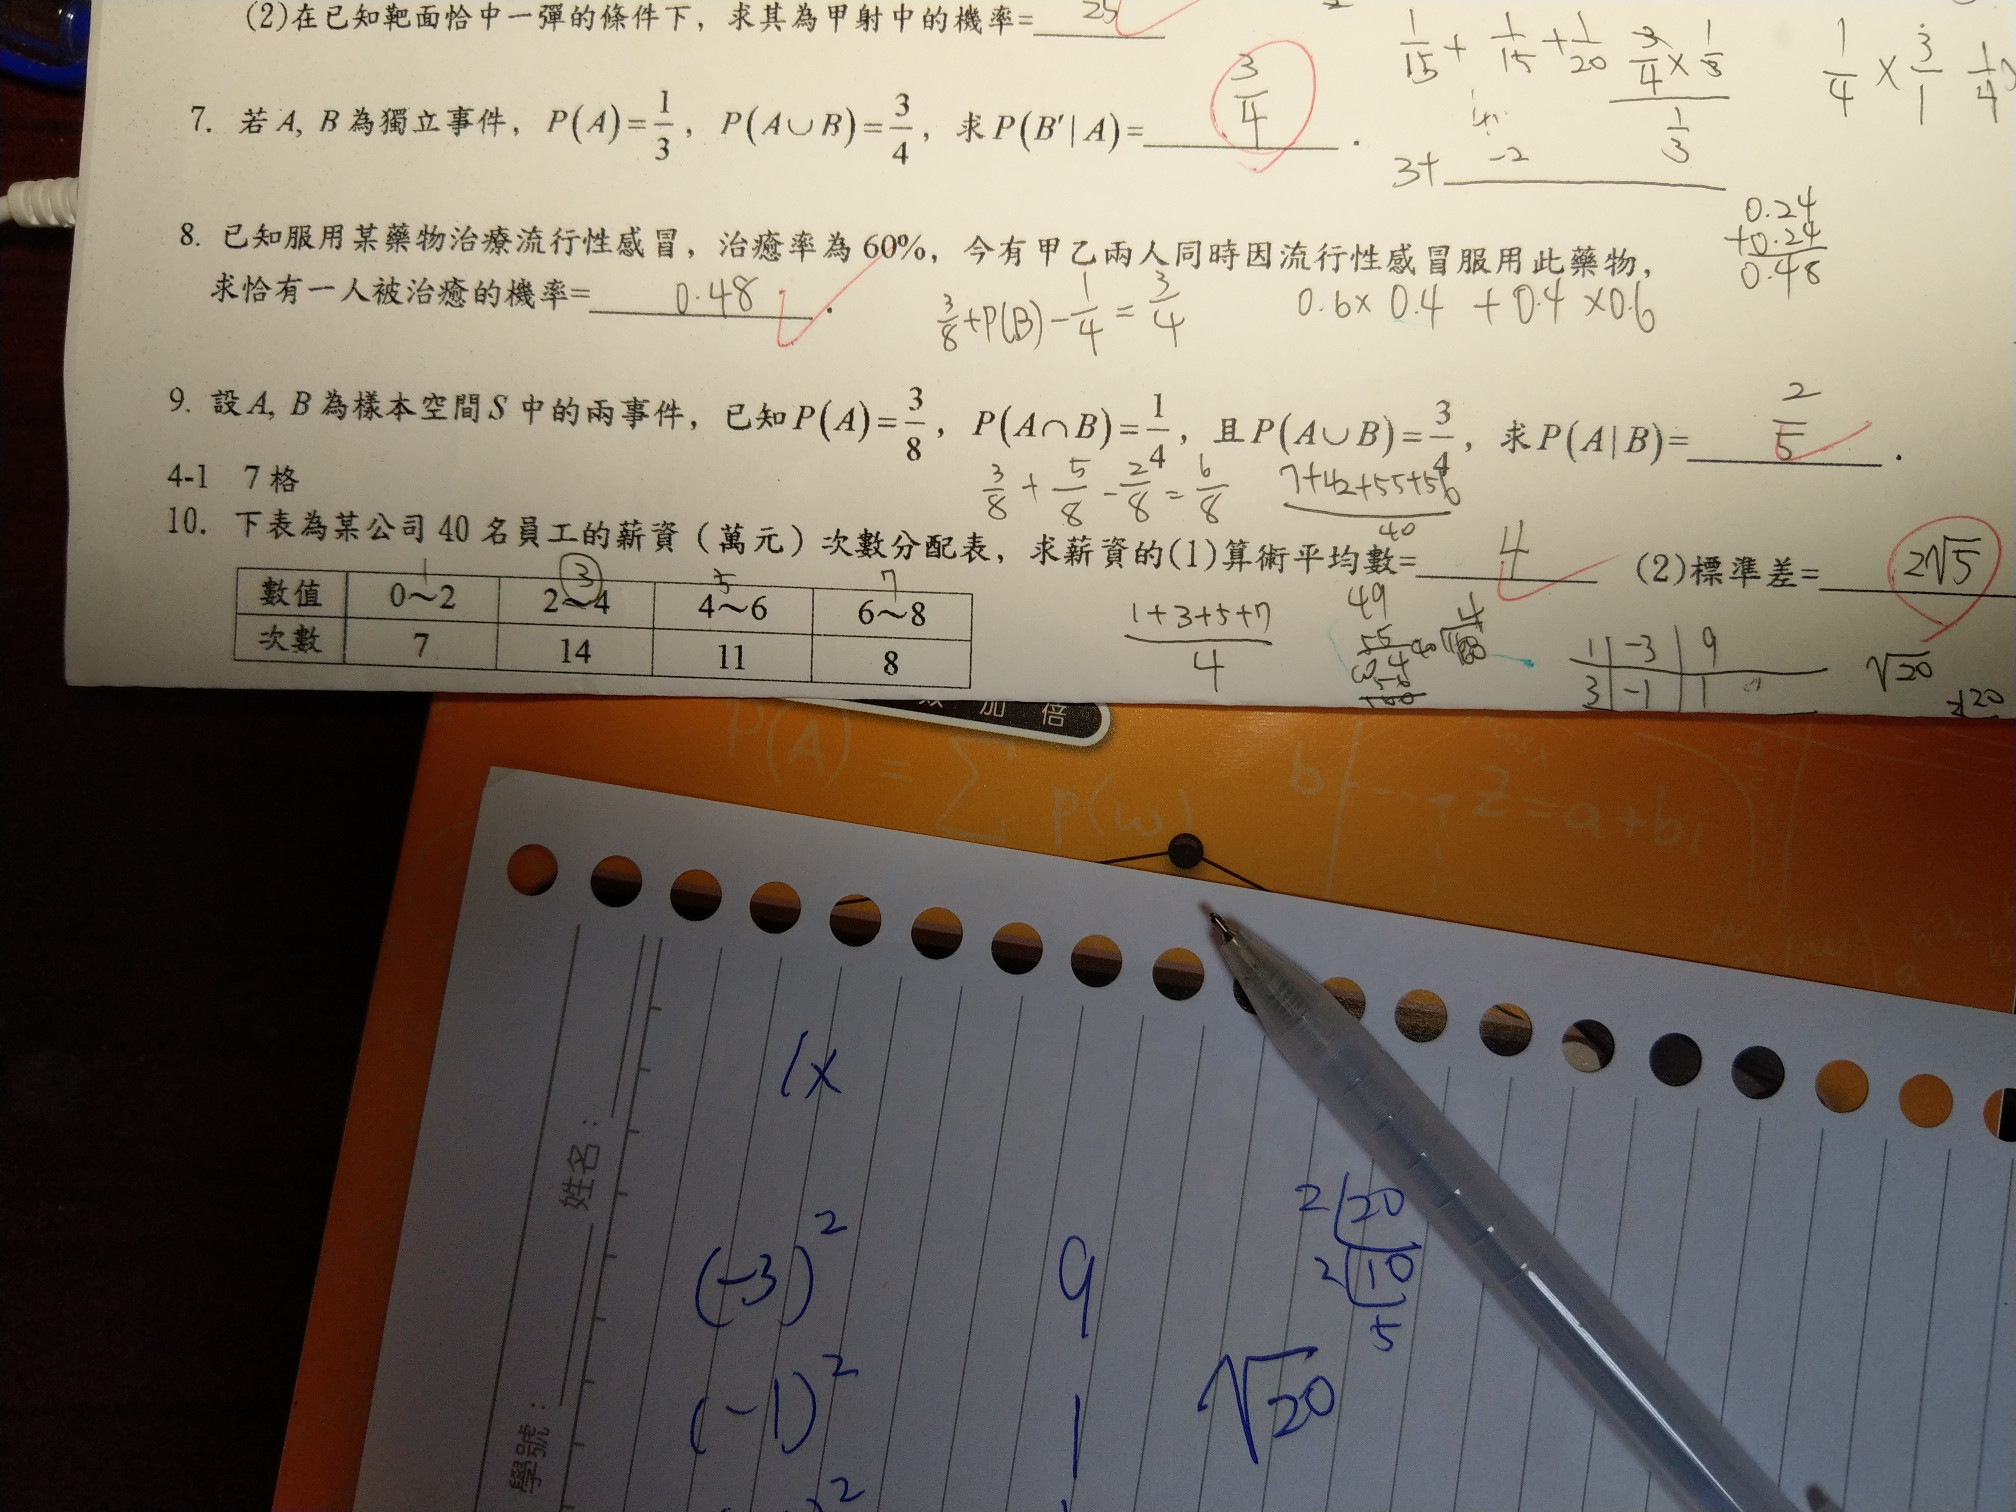 (2)在已知靶面恰中一彈的條件下，求其為甲射中的機率= 25
7. 若A, B為獨立事件，P(A)=1/3，P(A∪B)=3/4，求P(B′|A)= 3/4 .
1/15 + 1/15 + 1/20
3/4 × 1/3
1/3
1/4 × 3/1
3+
-2
0.24
+0.24
0.48
8. 已知服用某藥物治療流行性感冒，治癒率為60%，今有甲乙兩人同時因流行性感冒服用此藥物，
求恰有一人被治癒的機率= 0.48 .
3/8+P(B)-1/4=3/4
0.6×0.4+0.4×0.6
9. 設A, B為樣本空間S中的兩事件，已知P(A)=3/8，P(A∩B)=1/4，且P(A∪B)=3/4，求P(A|B)= 2/5 .
4-1 7格
3/8+5/8-2/8=6/8
7+42+55+56
40
10. 下表為某公司40名員工的薪資（萬元）次數分配表，求薪資的(1)算術平均數= 4 (2)標準差= 2√5
1 3 5 7
數值 0～2 2～4 4～6 6～8
次數 7 14 11 8
1+3+5+7
4
49
55
1 -3 9
3 -1 1
√20
加倍
P(A) = Σ p(w)
b
z=a+bi
cosx
姓名：
學號：
1x
(-3)² 9
(-1)² 1
2 20
2 10
5
√20
2